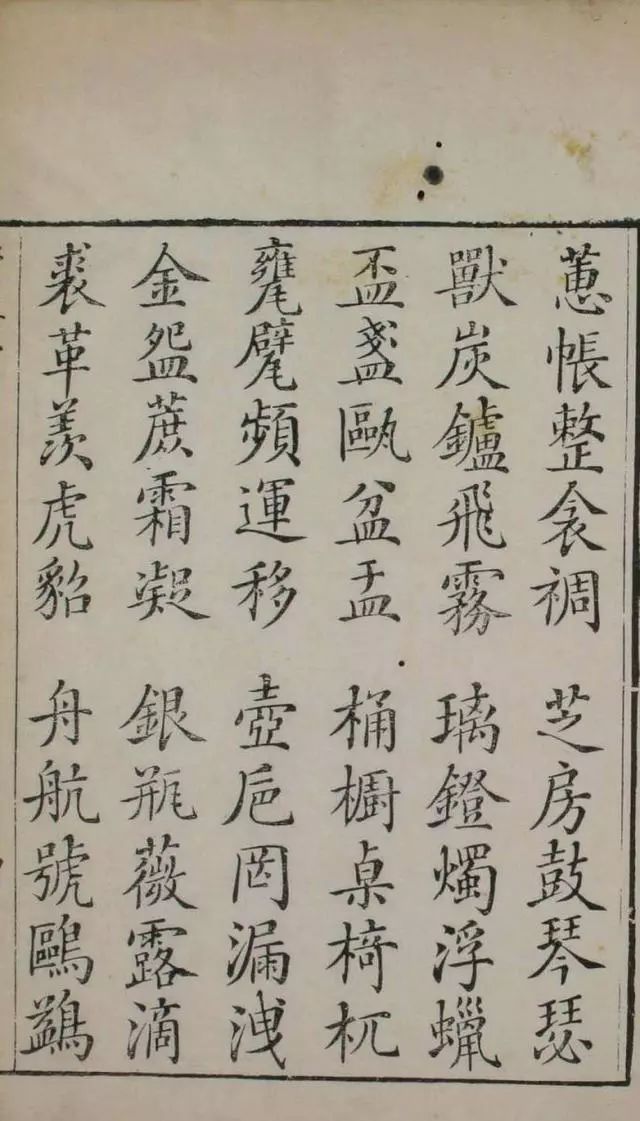 蕙帳整衾裯 芝房鼓琴瑟
獸炭鑪飛霧 璃鐙燭浮蠟
盃盞甌盆盂 桶櫥桌椅杌
甕甓頻運移 壺巵罔漏洩
金盌蔗霜凝 銀瓶薇露滴
裘革羨虎貂 舟航號鷗鷁